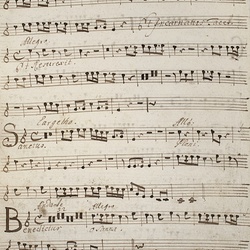 Et incarnatus tacet
Allegro
Et Resurrexit
Larghetto
All:
Sanctus
Pleni
Andante
Allegro
Benedictus
Osanna